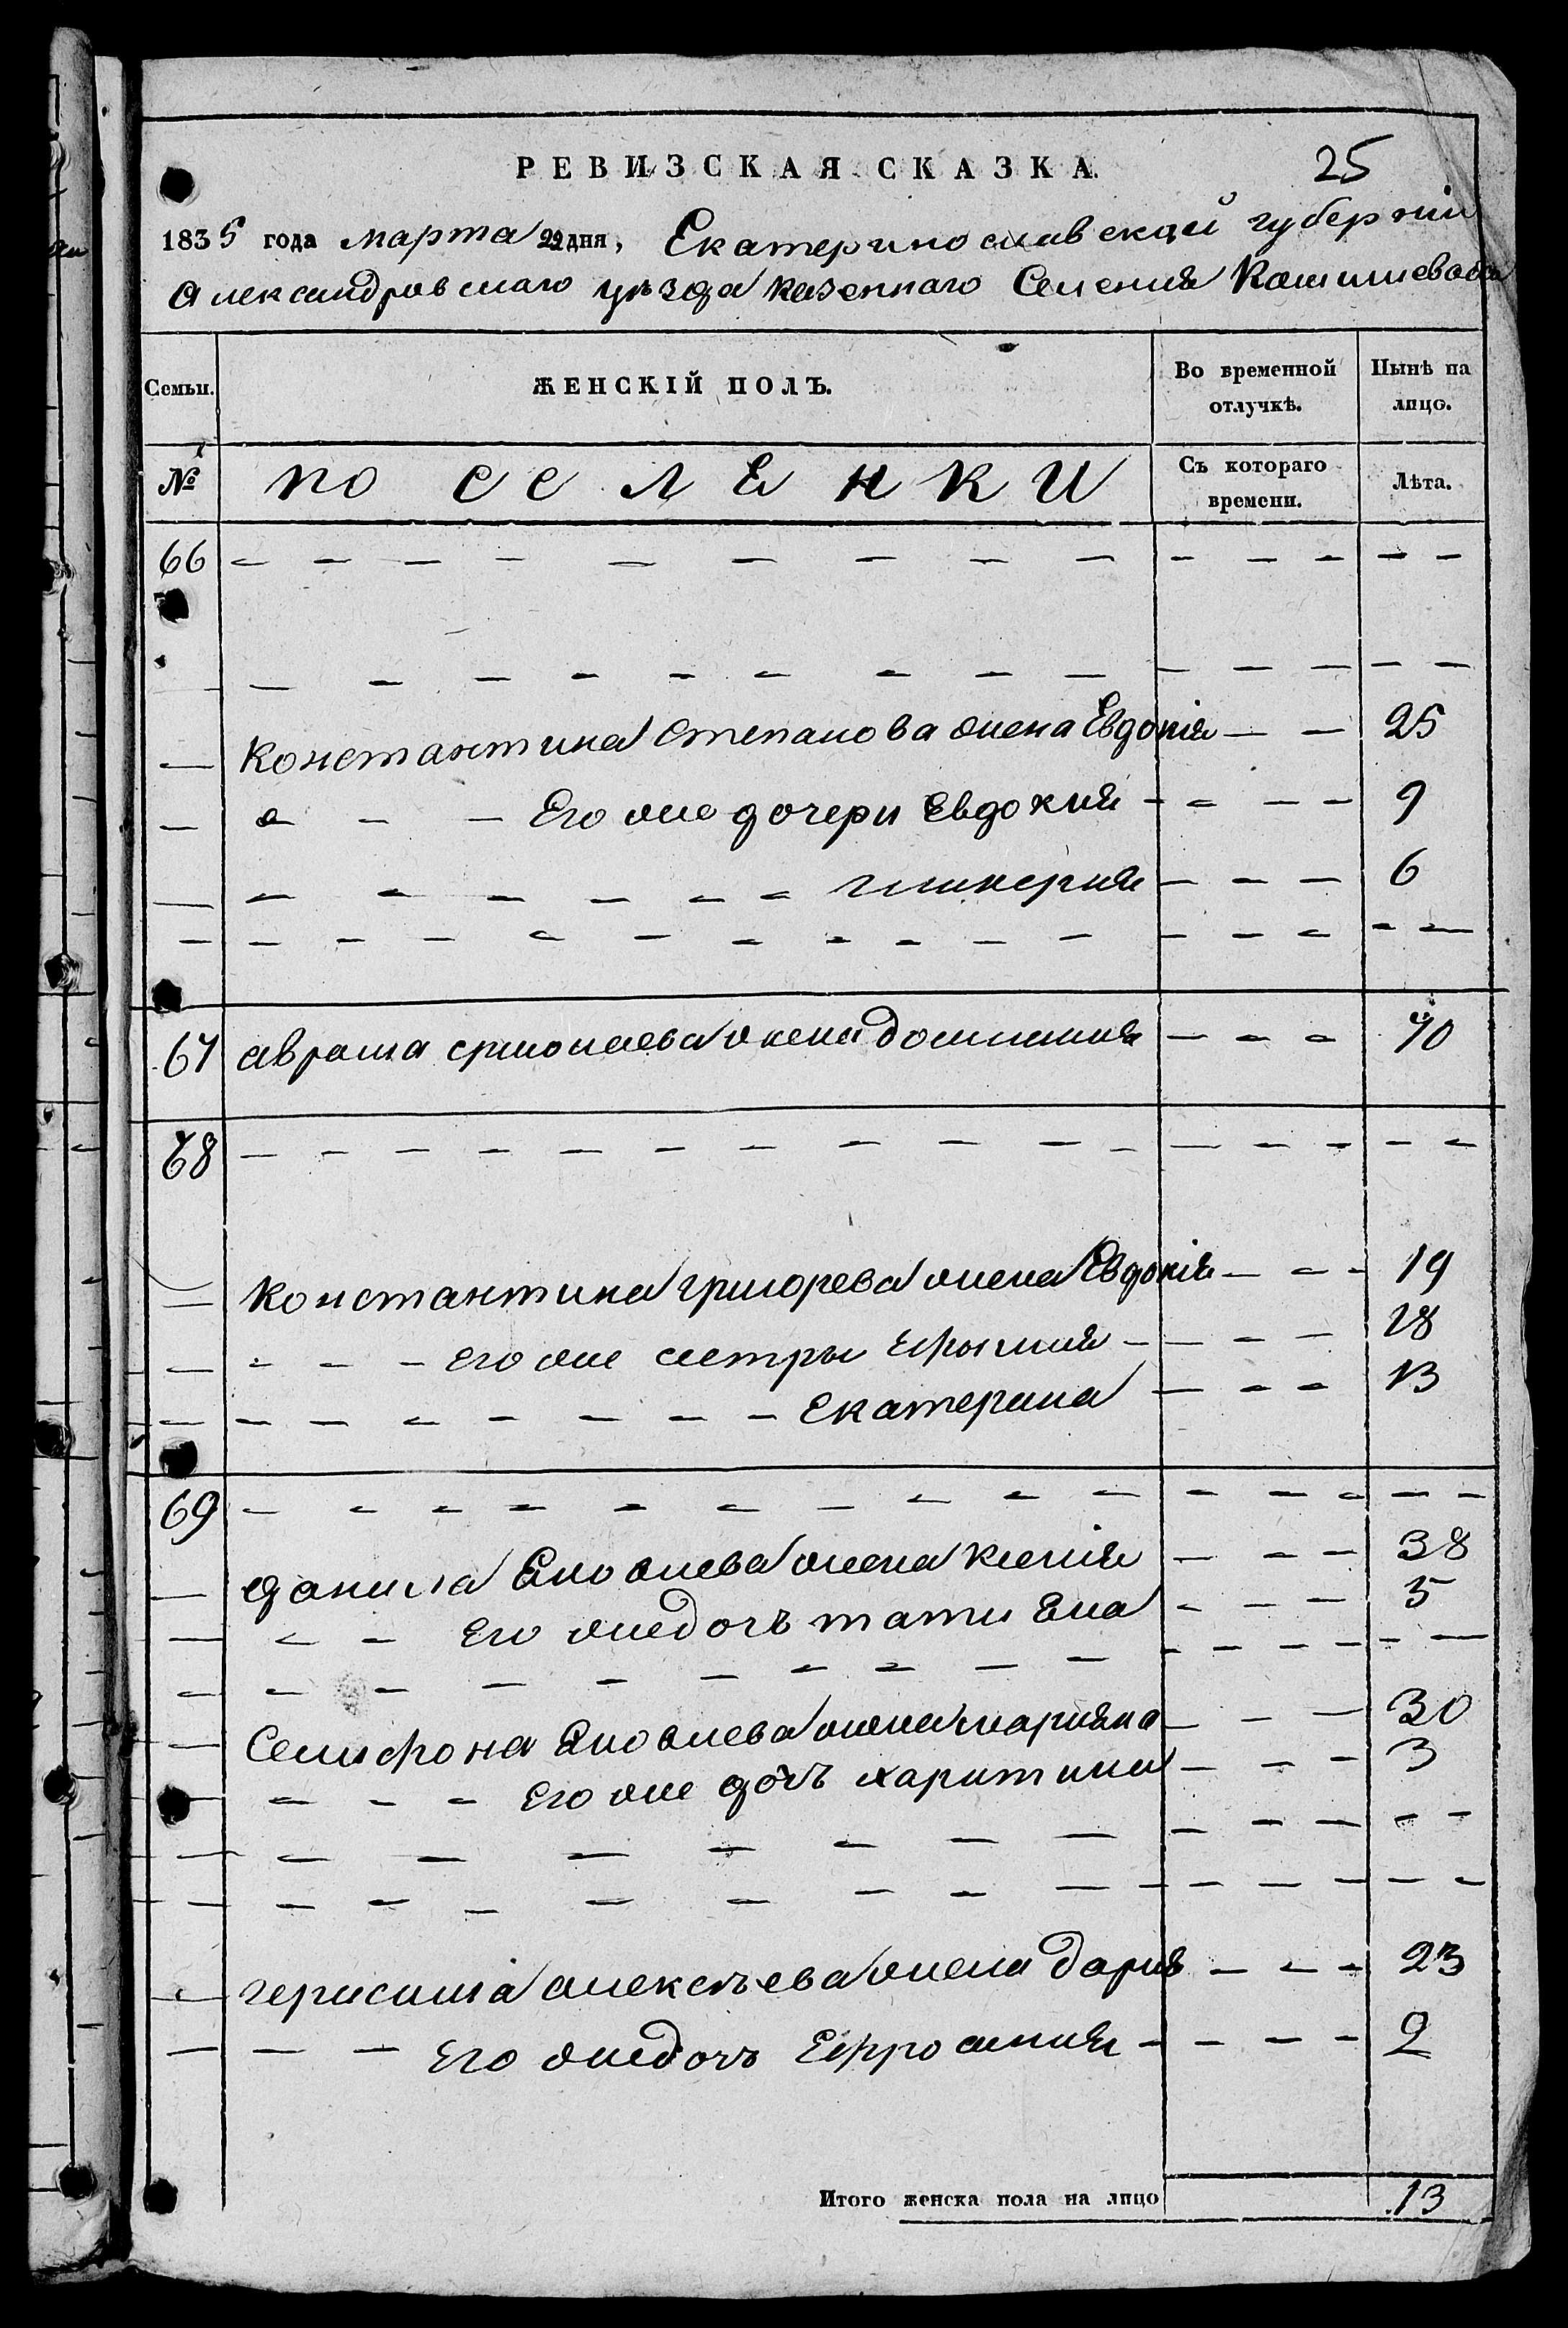 РЕВИЗСКАЯ СКАЗКА.
25
1835 года марта 22 дня, Екатеринославской губернии
Александровскаго уѣзда казеннаго Селения
Семьи. ЖЕНСКІЙ ПОЛЪ. Во временной отлучкѣ. Нынѣ на лицо.
№ поселенки Съ котораго времени. Лѣта.
66 — — — — — — — — — — — — — —
— — — — — — — — — — — — — —
— Константина Степанова жена Евдокія — — 25
— — — — Его же дочери Евдокия — — — — 9
— — — — — — — гликерия — — — 6
— — — — — — — — — — — — — — —
67 аврама жена домникия — — — 70
68 — — — — — — — — — — — — — — —
— Константина григорева жена Евдокія — — — 19
— — — — его же сестры Ефимия — — — — 18
— — — — — — — — Екатерина — — — 13
69 — — — — — — — — — — — — — — —
— данила Яковлева жена Ксения — — — 38
— — — Его же дочъ татияна — — — 5
— — — — — — — — — — — — — — —
— Семифона Яковлева жена марияна — — — 30
— — — — Его же дочъ харитина — — — 3
— — — — — — — — — — — —
— — — — — — — — — — — — — —
— герасима алексѣева жена дария — — — 23
— — — Его же дочъ Ефросиния — — — — 2
Итого женска пола на лицо 13